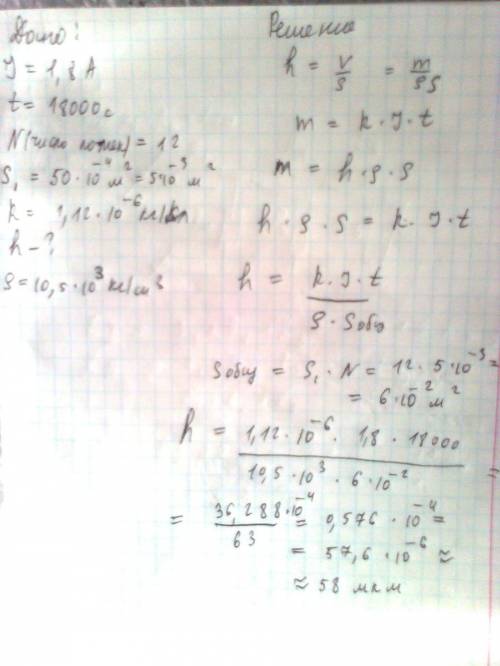 Дано:
J = 1,8 A
t = 18000 c
N (число ложек) = 12
S₁ = 50·10⁻⁴ м² = 5·10⁻³ м²
k = 1,12·10⁻⁶ кг/Кл
h - ?
ρ = 10,5·10³ кг/м³
Решение
h = V/S = m/ρS
m = k·J·t
m = h·ρ·S
h·ρ·S = k·J·t
h = k·J·t / ρ·Sобщ
Sобщ = S₁·N = 12·5·10⁻³ =
= 6·10⁻² м²
h = 1,12·10⁻⁶·1,8·18000 / 10,5·10³·6·10⁻² =
= 36,288·10⁻⁴ / 63 = 0,576·10⁻⁴ =
= 57,6·10⁻⁶ ≈
≈ 58 мкм